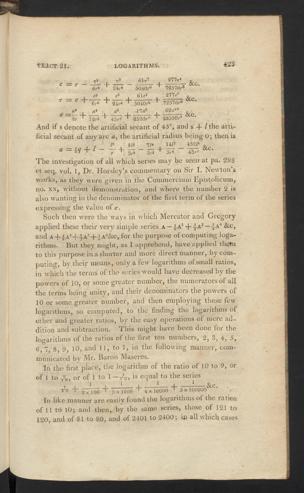 TRACT 21. LOGARITHMS. 423
And if s denote the artificial secant of 45°, and s + l the arti-
ficial secant of any arc a, the artificial radius being 0; then is
The investigation of all which series may be seen at pa. 298
et seq. vol. 1, Dr. Horsley's commentary on Sir I. Newton's
works, as they were given in the Commercium Epistolicum,
no. XX, without demonstration, and where the number 2 is
also wanting in the denominator of the first term of the series
expressing the value of
Such then were the ways in which Mercator and Gregory
applied these their very simple series A − ½A² + ⅓A³ − ¼A⁴ &c,
and A + ½A² + ⅓A³ + ¼A⁴ &c, for the purpose of computing loga-
rithms. But they might, as I apprehend, have applied them
to this purpose in a shorter and more direct manner, by com-
puting, by their means, only a few logarithms of small ratios,
in which the terms of the series would have decreased by the
powers of 10, or some greater number, the numerators of all
the terms being unity, and their denominators the powers of
10 or some greater number, and then employing these few
logarithms, so computed, to the finding the logarithms of
other and greater ratios, by the easy operations of mere ad-
dition and subtraction. This might have been done for the
logarithms of the ratios of the first ten numbers, 2, 3, 4, 5,
6, 7, 8, 9, 10, and 11, to 1, in the following manner, com-
municated by Mr. Baron Maseres.
In the first place, the logarithm of the ratio of 10 to 9, or
of 1 to 9/10, or of 1 to 1 − 1/10, is equal to the series
1/10 + 1/2×100 + 1/3×1000 + 1/4×10000 + 1/5×100000 &c.
In like manner are easily found the logarithms of the ratios
of 11 to 10; and then, by the same series, those of 121 to
120, and of 81 to 80, and of 2401 to 2400; in all which cases